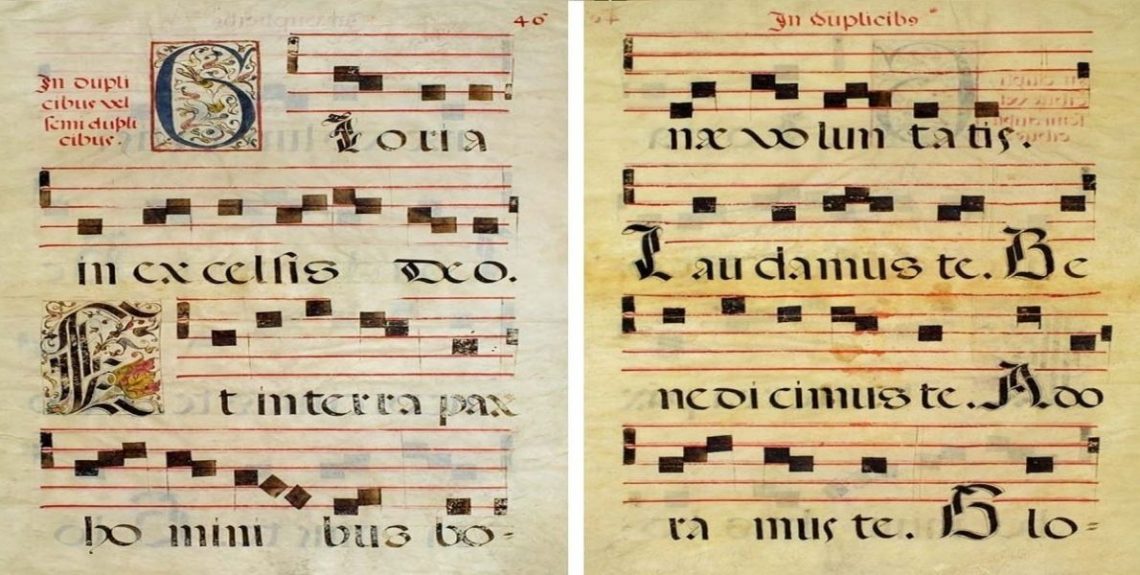 40
In dupli
cibus vel
semi dupli
cibus.
Gloria
in excelsis Deo.
Et in terra pax
ho mini bus bo-
In duplicibus
næ volun tatis.
Lau damus te. Be
nedi cimus te. Ado
ra mus te. Glo-